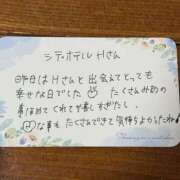 シティホテル Hさん
昨日はHさんと出会えてとっても
幸せな日でした
たくさんみおの
事ほめてくれてや楽しすぎたし、
な事も たくさんできて気持ちよかったね